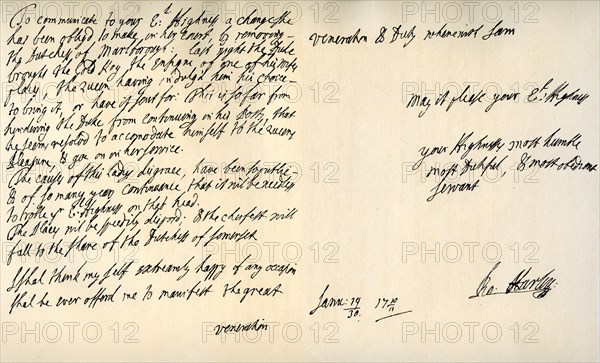 To communicate to your E:ll Highness a change She
has been oblig'd to make, in her Court, by removing
the Dutchess of Marlborough: last night the Duke
brought the Gold Key the Ensigne of one of her
places, the Queen having indulg'd him his choice
to bring it, or have it sent for: This is so far from
hindering the Duke from continuing in his Posts, that
he seems resolv'd to accomodate himself to the Queens
Pleasure, & goe on in her service.
The causes of this Ladys disgrace, have been so public
& of so many years continuance that it wil be needless
to trouble yr E:ll Highness on that head.
The Places wil be speedily dispos'd: & the cheifest will
fall to the share of the Dutchess of Somerset
I shal think my self extreamly happy if any occasion
shal be ever offer'd me to manifest the great
veneration
veneration & Duty wherewith I am
May it please your E:ll Highness
your Highness's most humble
most Dutiful, & most obedient
servant
Ro: Harley
Janu: 19/30. 17 10/11
PHOTO 12